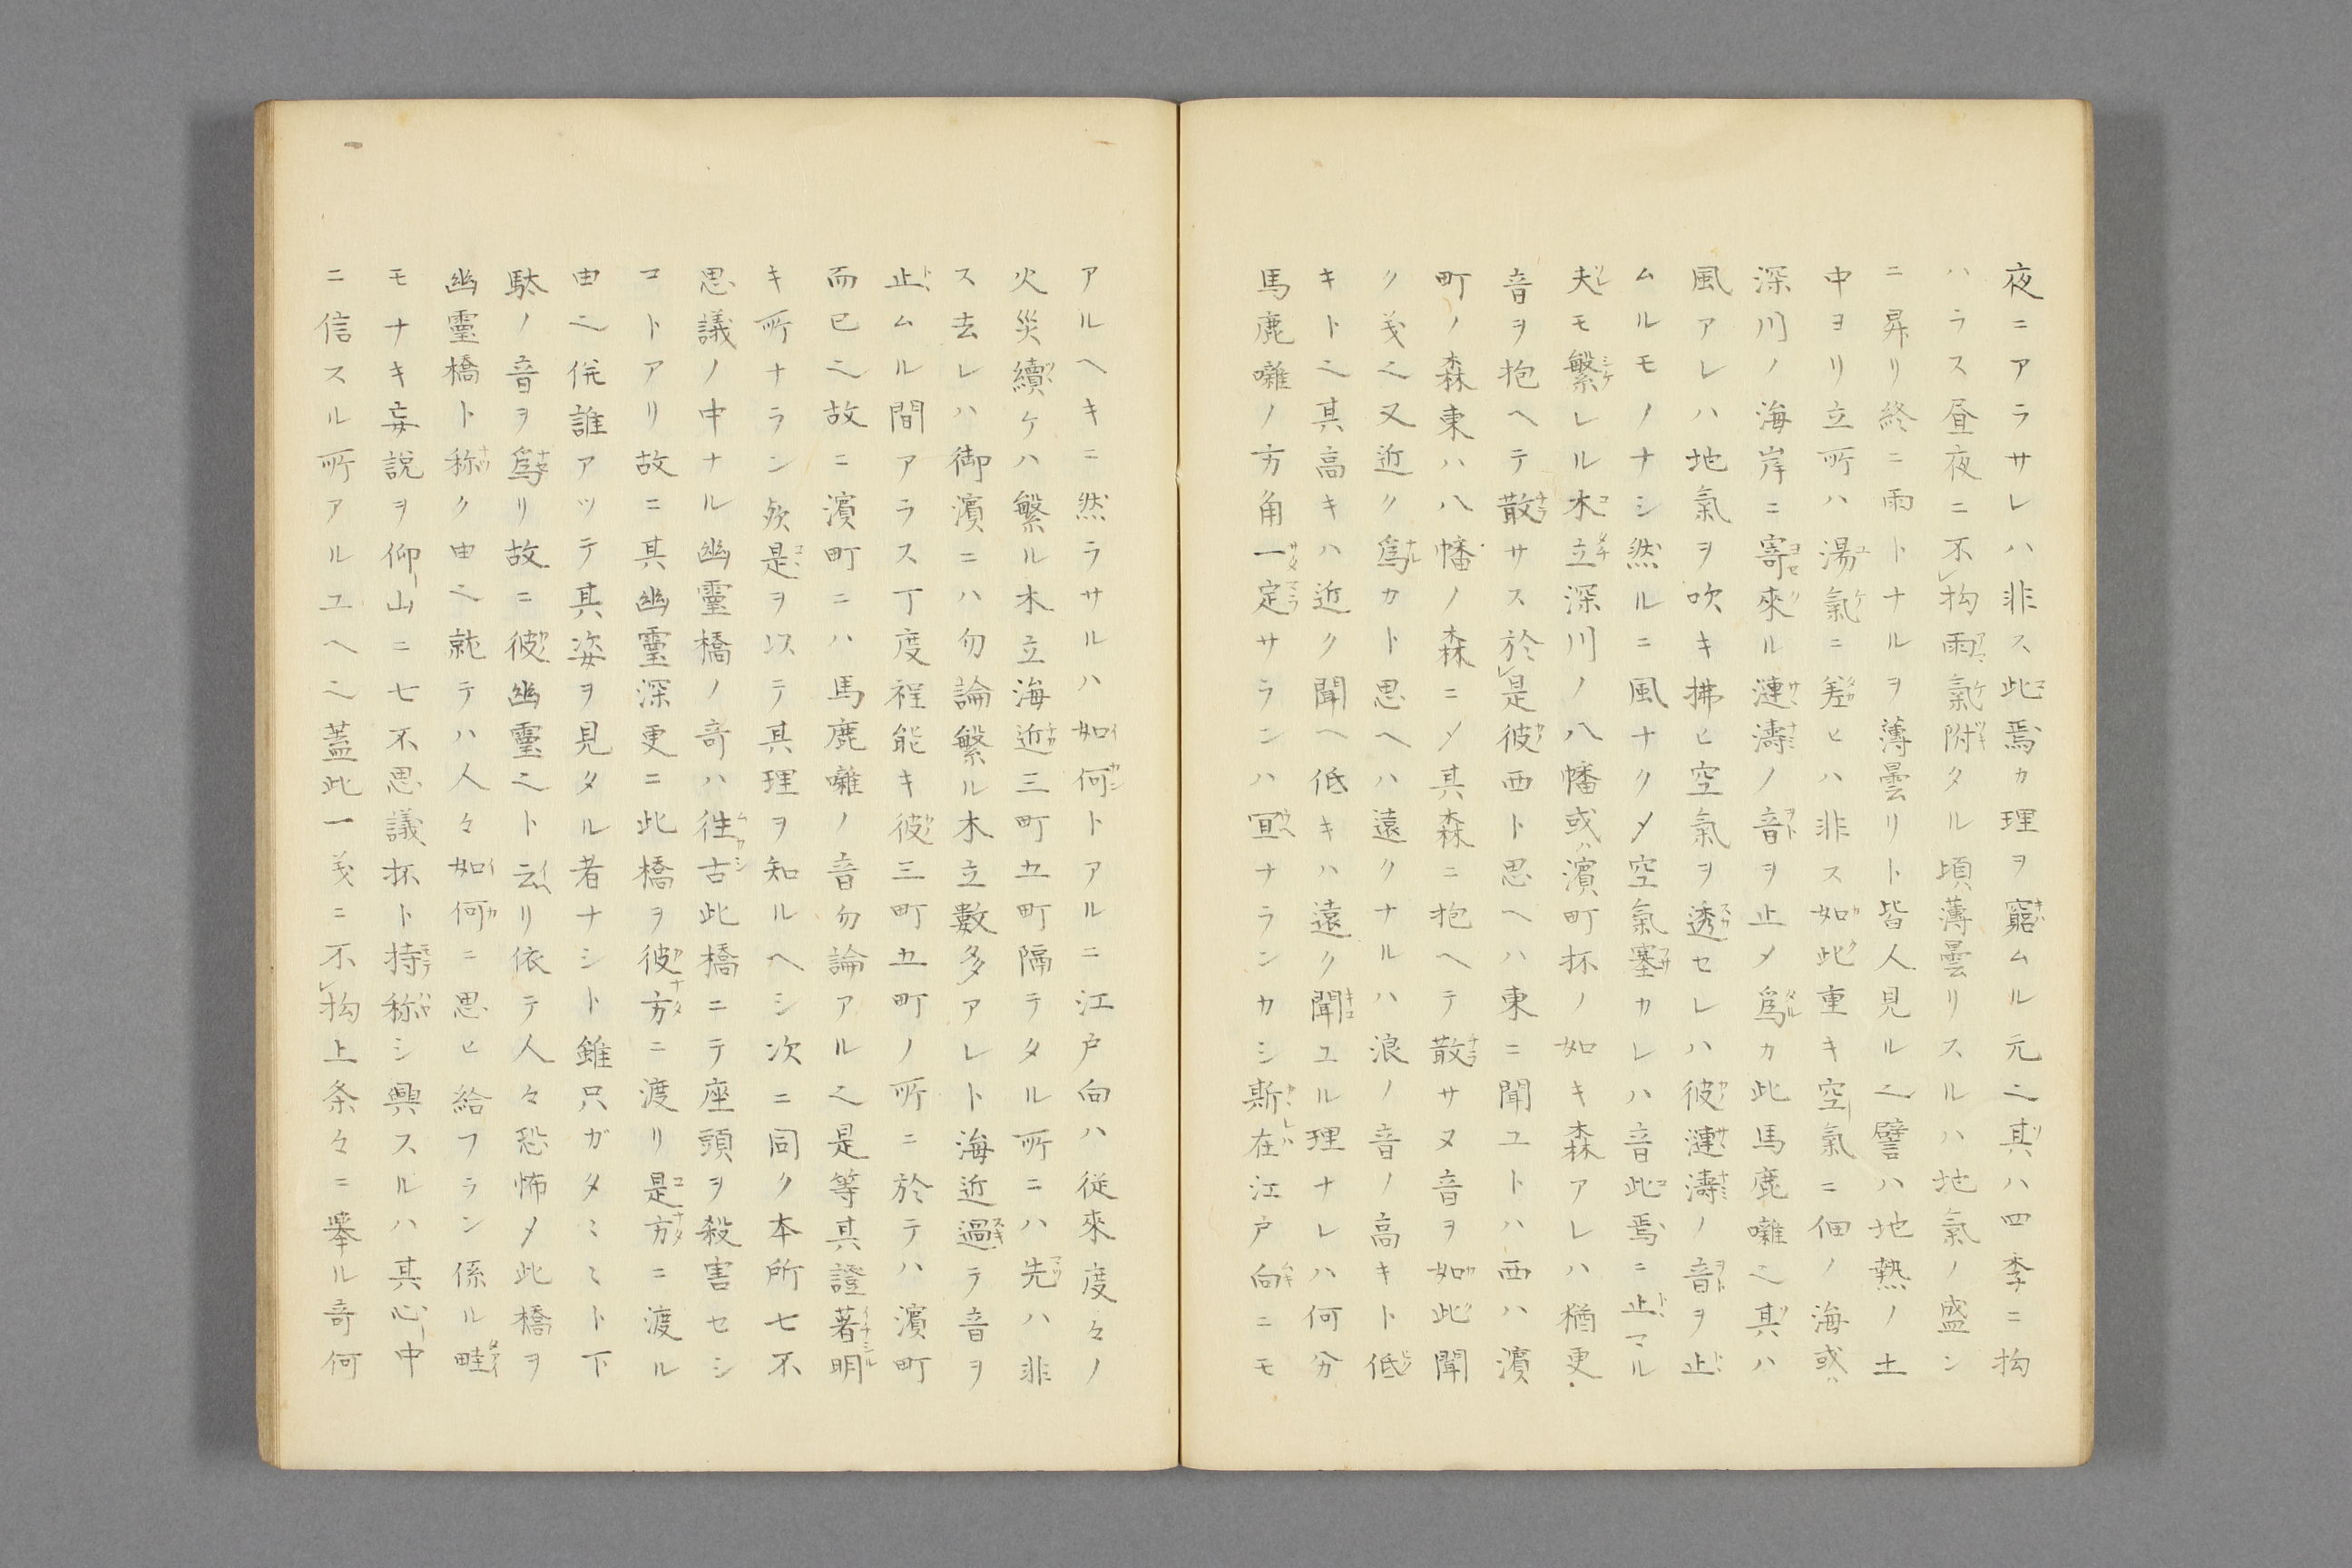 夜ニアラサレハ非ス此焉カ理ヲ窮ムル元之其ハ四季ニ拘
ハラス昼夜ニ不拘雨氣附タル頃薄曇リスルハ地氣ノ盛ン
ニ昇リ終ニ雨トナルヲ薄曇リト皆人見ル之譬ハ地熱ノ土
中ヨリ立所ハ湯氣ニ差ヒハ非ス如此重キ空氣ニ佃ノ海或ハ
深川ノ海岸ニ寄來ル漣濤ノ音ヲ止メ爲カ此馬鹿囃之其ハ
風アレハ地氣ヲ吹キ拂ヒ空氣ヲ透セレハ彼漣濤ノ音ヲ止
ムルモノナシ然ルニ風ナクメ空氣塞カレハ音此焉ニ止マル
夫モ繁レル木立深川ノ八幡或ハ濱町抔ノ如キ森アレハ猶更
音ヲ抱ヘテ散サス於是彼西ト思ヘハ東ニ聞ユトハ西ハ濱
町ノ森東ハ八幡ノ森ニメ其森ニ抱ヘテ散サヌ音ヲ如此聞
ク義之又近ク爲カト思ヘハ遠クナルハ浪ノ音ノ高キト低
キト之其高キハ近ク聞ヘ低キハ遠ク聞ユル理ナレハ何分
馬鹿囃ノ方角一定サランハ冝ナランカシ斯在江戸向ニモ
アルヘキニ然ラサルハ如何トアルニ江戸向ハ従來度々ノ
火災續ケハ繁ル木立海近三町五町隔テタル所ニハ先ハ非
ス去レハ御濱ニハ勿論繁ル木立數多アレト海近過テ音ヲ
止ムル間アラス丁度程能キ彼三町五町ノ所ニ於テハ濱町
而已之故ニ濱町ニハ馬鹿囃ノ音勿論アル之是等其證著明
キ所ナラン歟是ヲ以テ其理ヲ知ルヘシ次ニ同ク本所七不
思議ノ中ナル幽靈橋ノ奇ハ徃古此橋ニテ座頭ヲ殺害セシ
コトアリ故ニ其幽靈深更ニ此橋ヲ彼方ニ渡リ是方ニ渡ル
由之併誰アッテ其姿ヲ見タル者ナシト雖只ガタミミト下
駄ノ音ヲ爲リ故ニ彼幽靈之ト云リ依テ人々恐怖メ此橋ヲ
幽靈橋ト称ク由之就テハ人々如何ニ思ヒ給フラン係ル畦
モナキ妄説ヲ仰山ニ七不思議抔ト持称シ興スルハ其心中
ニ信スル所アルユヘ之蓋此一義ニ不拘上条々ニ擧ル奇何